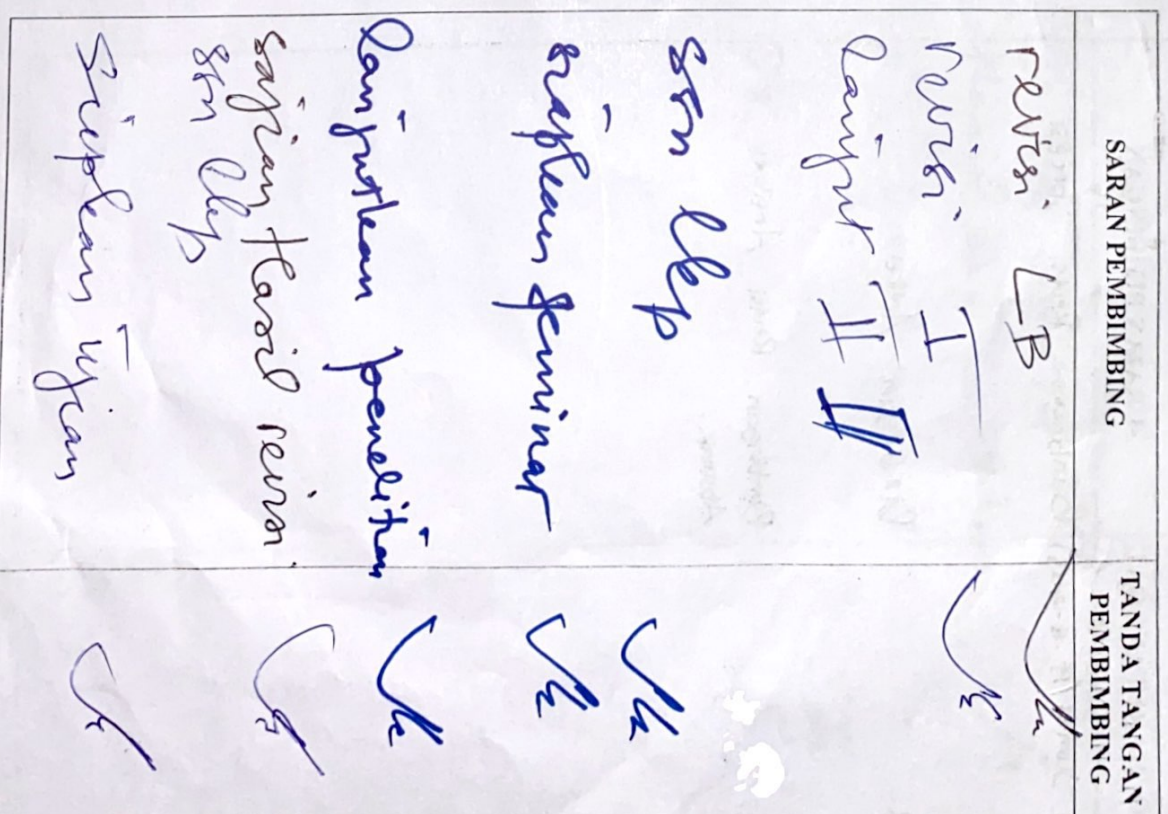 SARAN PEMBIMBING
TANDA TANGAN
PEMBIMBING
revisi LB
revisi I
lanjut II III
ssn lkp
siapkan seminar
lanjutkan penelitian
sajian Hasil revisi
ssn lkp
siapkan ujian